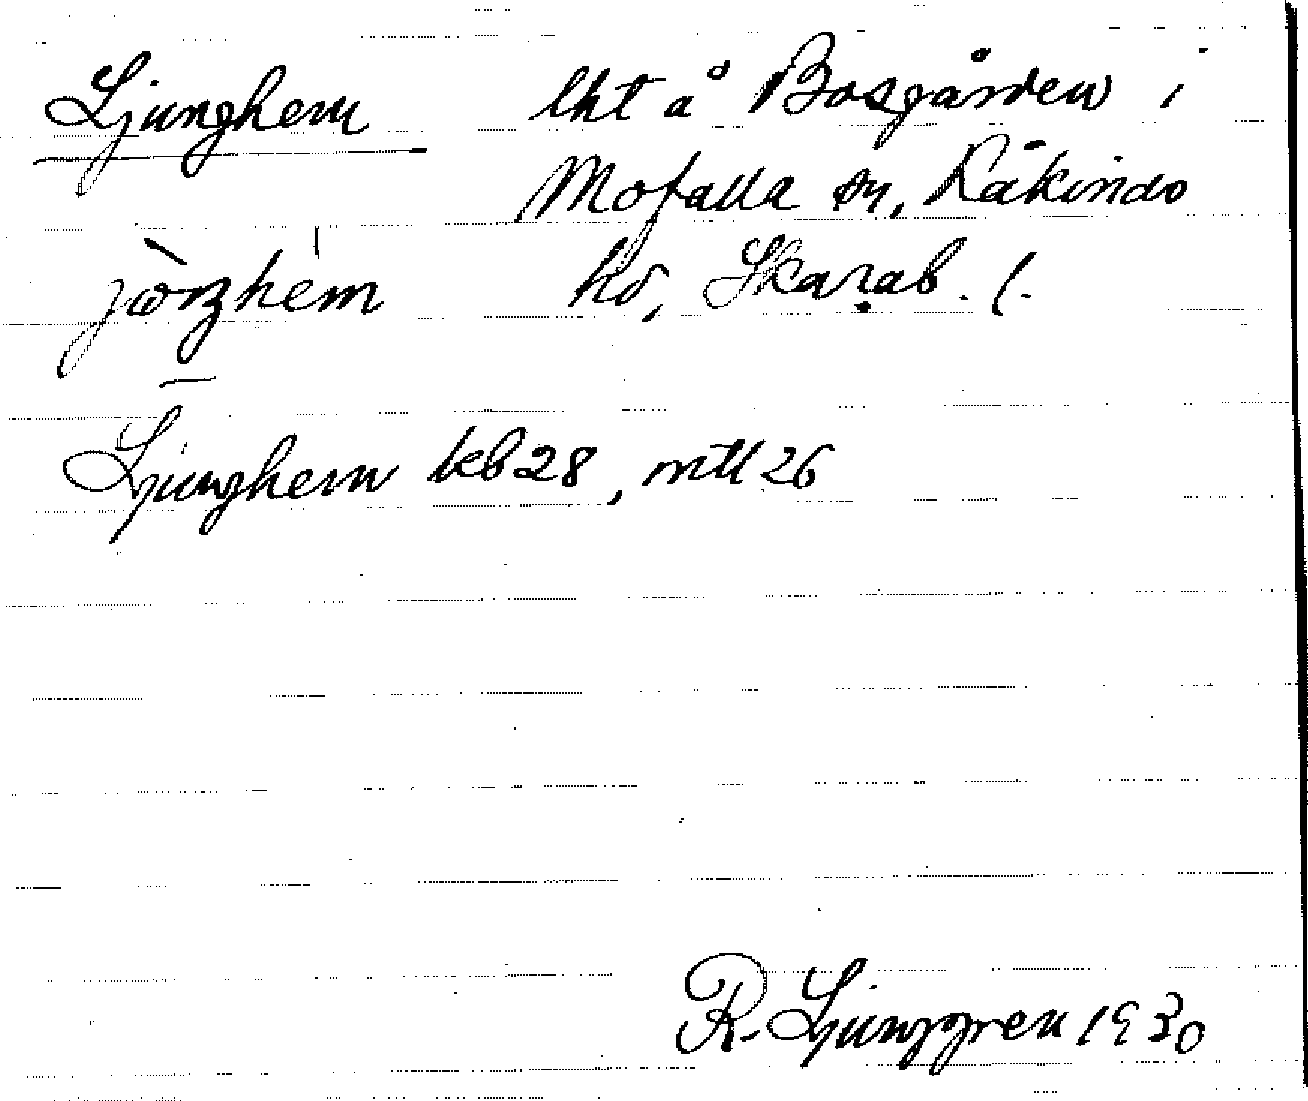 Ljunghem lht å Bosgården i
Mofalla sn, Kåkinds
jòŋhem hd, Skarab. l.
Ljunghem kb 28, mtl 26
R. Ljunggren 1930